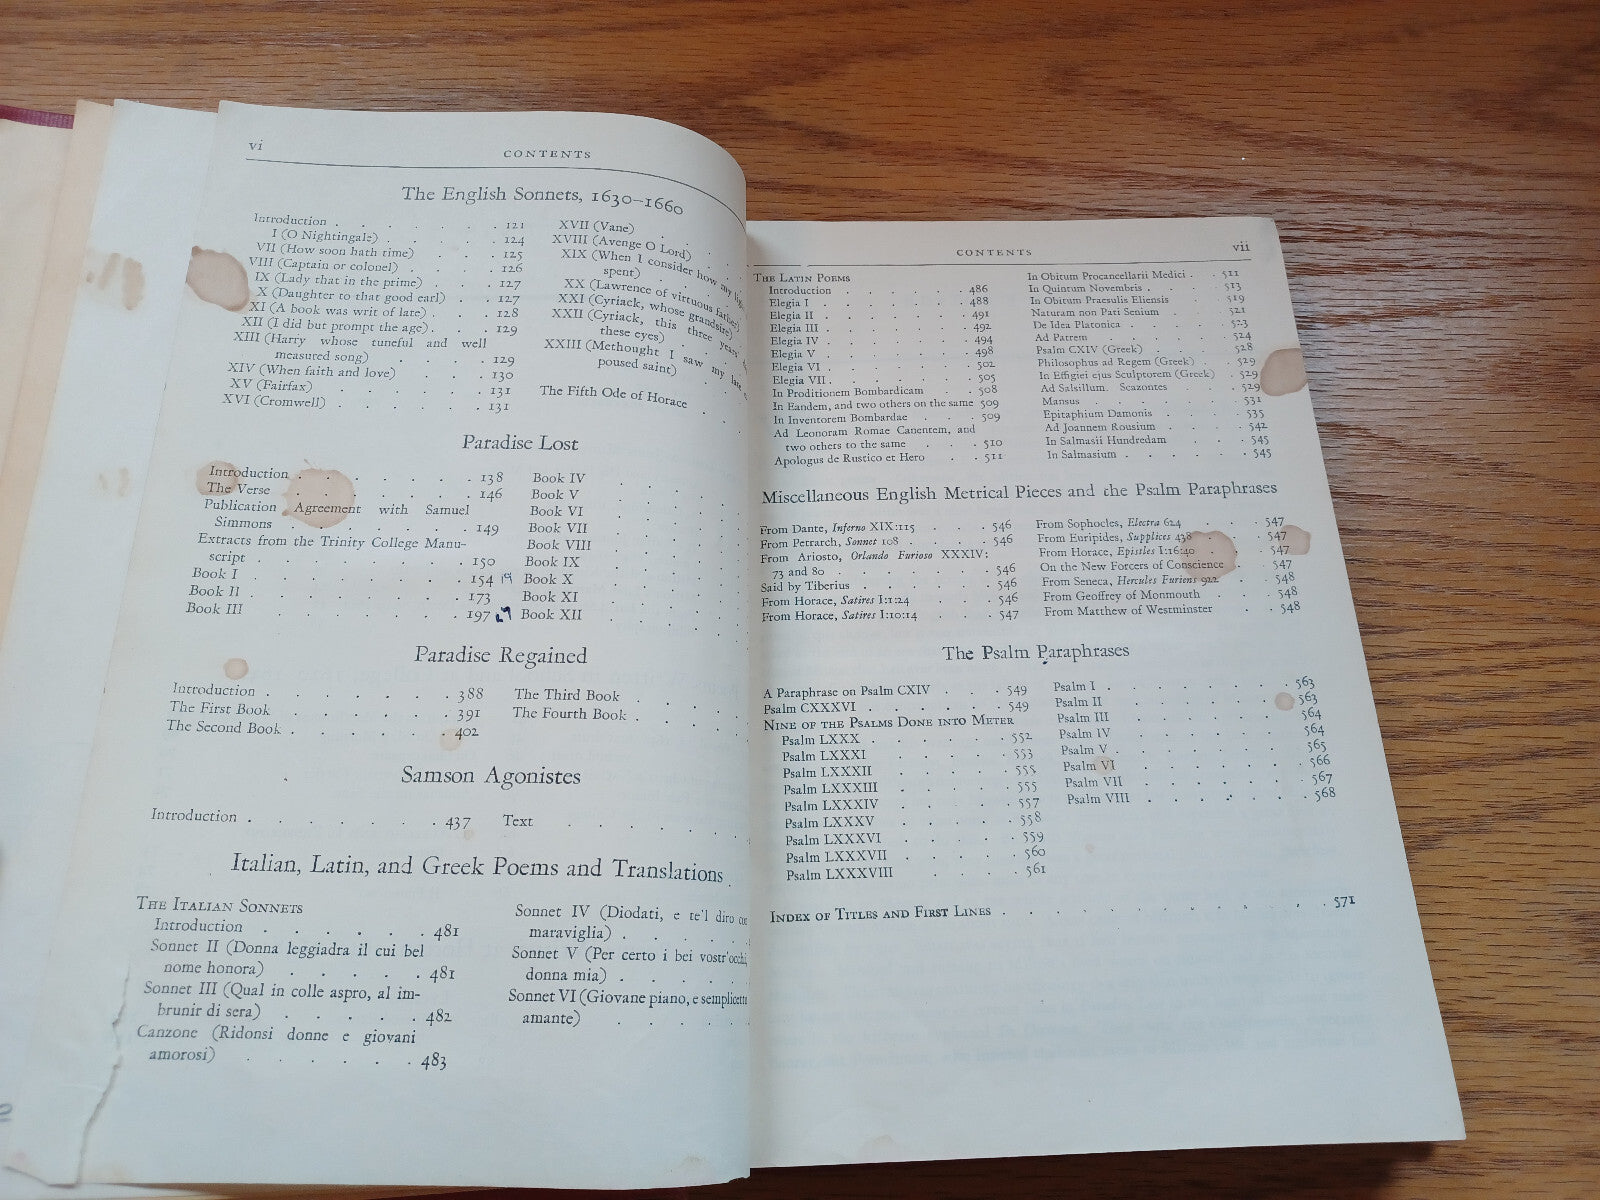 vi
CONTENTS
The English Sonnets, 1630–1660
Introduction . . . . . . 121
I (O Nightingale) . . . . . 124
VII (How soon hath time) . . . 125
VIII (Captain or colonel) . . . . 126
IX (Lady that in the prime) . . . 127
X (Daughter to that good earl) . . 127
XI (A book was writ of late) . . . 128
XII (I did but prompt the age) . . . 129
XIII (Harry whose tuneful and well
measured song) . . . . 129
XIV (When faith and love) . . . . 130
XV (Fairfax) . . . . . . 131
XVI (Cromwell) . . . . . . 131
XVII (Vane)
XVIII (Avenge O Lord) .
XIX (When I consider how my
spent)
XX (Lawrence of virtuous father)
XXI (Cyriack, whose grandsire)
XXII (Cyriack, this three years'
these eyes)
XXIII (Methought I saw my late
poused saint)
The Fifth Ode of Horace .
Paradise Lost
Introduction . . . . . . . 138
The Verse . . . . . . . 146
Publication Agreement with Samuel
Simmons . . . . . . 149
Extracts from the Trinity College Manu-
script . . . . . . . 150
Book I . . . . . . . . 154 19
Book II . . . . . . . . 173
Book III . . . . . . . . 197
Book IV
Book V
Book VI
Book VII
Book VIII
Book IX
Book X
Book XI
Book XII
Paradise Regained
Introduction . . . . . . . 388
The First Book . . . . . . 391
The Second Book . . . . . . 402
The Third Book
The Fourth Book .
Samson Agonistes
Introduction . . . . . . . 437
Text . . . . .
Italian, Latin, and Greek Poems and Translations
The Italian Sonnets
Introduction . . . . . . 481
Sonnet II (Donna leggiadra il cui bel
nome honora) . . . . . 481
Sonnet III (Qual in colle aspro, al im-
brunir di sera) . . . . . 482
Canzone (Ridonsi donne e giovani
amorosi) . . . . . . 483
Sonnet IV (Diodati, e te'l diro con
maraviglia) . . . . .
Sonnet V (Per certo i bei vostr'occhi,
donna mia) .
Sonnet VI (Giovane piano, e semplicetto
amante) . . . .
CONTENTS
vii
The Latin Poems
Introduction . . . . . 486
Elegia I . . . . . . 488
Elegia II . . . . . . 491
Elegia III . . . . . . 492
Elegia IV . . . . . . 494
Elegia V . . . . . . 498
Elegia VI . . . . . . 502
Elegia VII . . . . . . 505
In Proditionem Bombardicam . . 508
In Eandem, and two others on the same 509
In Inventorem Bombardae . . . 509
Ad Leonoram Romae Canentem, and
two others to the same . . . 510
Apologus de Rustico et Hero . . 511
In Obitum Procancellarii Medici . . 511
In Quintum Novembris . . . . 513
In Obitum Praesulis Eliensis . . . 519
Naturam non Pati Senium . . . 521
De Idea Platonica . . . . . 523
Ad Patrem . . . . . . 524
Psalm CXIV (Greek) . . . . 528
Philosophus ad Regem (Greek) . . 529
In Effigiei ejus Sculptorem (Greek) . 529
Ad Salsillum. Scazontes . . . 529
Mansus . . . . . . . 531
Epitaphium Damonis . . . . 535
Ad Joannem Rousium . . . . 542
In Salmasii Hundredam . . . 545
In Salmasium . . . . . . 545
Miscellaneous English Metrical Pieces and the Psalm Paraphrases
From Dante, Inferno XIX:115 . . . 546
From Petrarch, Sonnet 108 . . . . 546
From Ariosto, Orlando Furioso XXXIV:
73 and 80 . . . . . . 546
Said by Tiberius . . . . . 546
From Horace, Satires I:1:24 . . . 546
From Horace, Satires I:10:14 . . . 547
From Sophocles, Electra 624 . . . 547
From Euripides, Supplices 438 . . . 547
From Horace, Epistles I:16:40 . . . 547
On the New Forcers of Conscience . . 547
From Seneca, Hercules Furiens 922 . . 548
From Geoffrey of Monmouth . . . 548
From Matthew of Westminster . . . 548
The Psalm Paraphrases
A Paraphrase on Psalm CXIV . . . 549
Psalm CXXXVI . . . . . . 549
Nine of the Psalms Done into Meter
Psalm LXXX . . . . . . 552
Psalm LXXXI . . . . . 553
Psalm LXXXII . . . . . 555
Psalm LXXXIII . . . . . 555
Psalm LXXXIV . . . . . 557
Psalm LXXXV . . . . . 558
Psalm LXXXVI . . . . . 559
Psalm LXXXVII . . . . . 560
Psalm LXXXVIII . . . . 561
Psalm I . . . . . . . . 563
Psalm II . . . . . . . 563
Psalm III . . . . . . . 564
Psalm IV . . . . . . . 564
Psalm V . . . . . . . . 565
Psalm VI . . . . . . . 566
Psalm VII . . . . . . . 567
Psalm VIII . . . . . . . 568
Index of Titles and First Lines . . . . . . . . . . 571